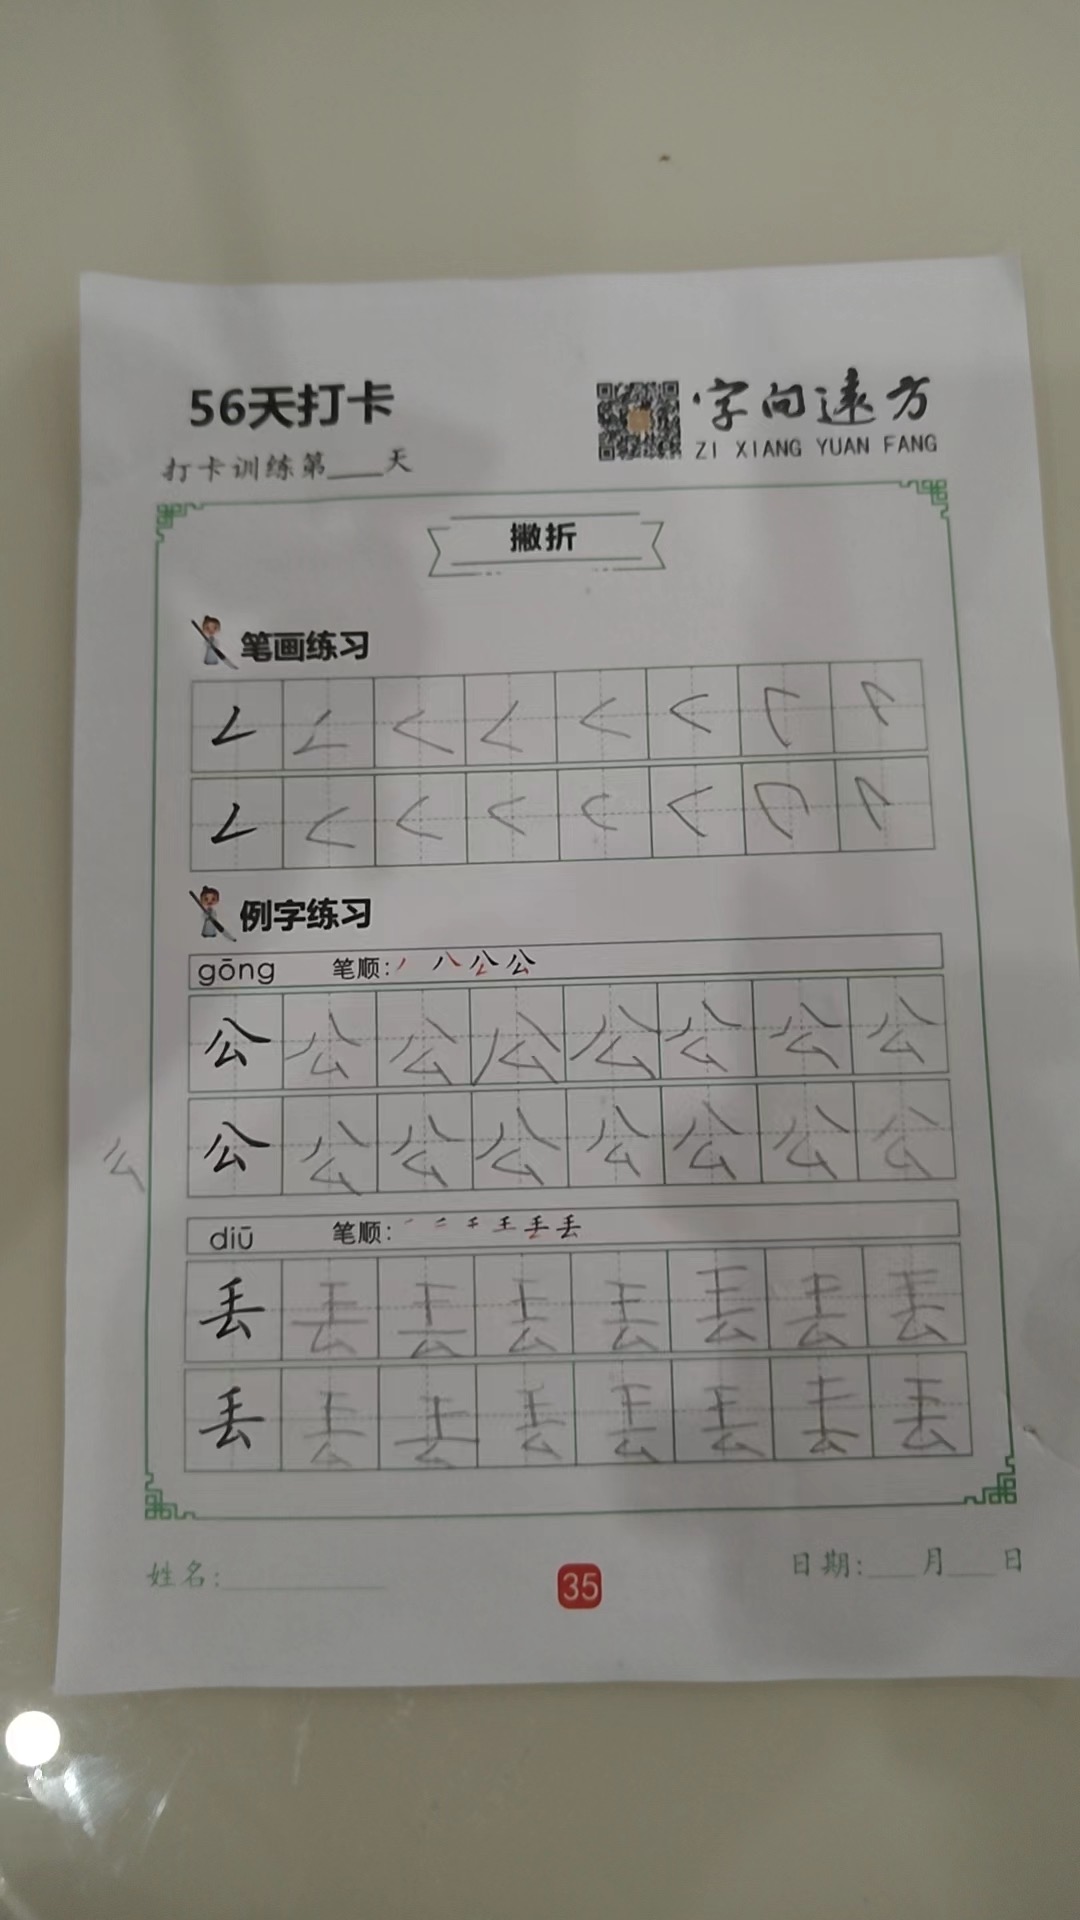 56天打卡
字向远方
ZI XIANG YUAN FANG
打卡训练第___天
撇折
笔画练习
例字练习
gōng 笔顺: 丿 八 公 公
公 公 公 公 公 公 公 公
公 公 公 公 公 公 公 公
么
diū 笔顺: 一 二 千 王 丢 丢
丢 丢 丢 丢 丢 丢 丢 丢
丢 丢 丢 丢 丢 丢 丢 丢
姓名:__________
35
日期:___月___日